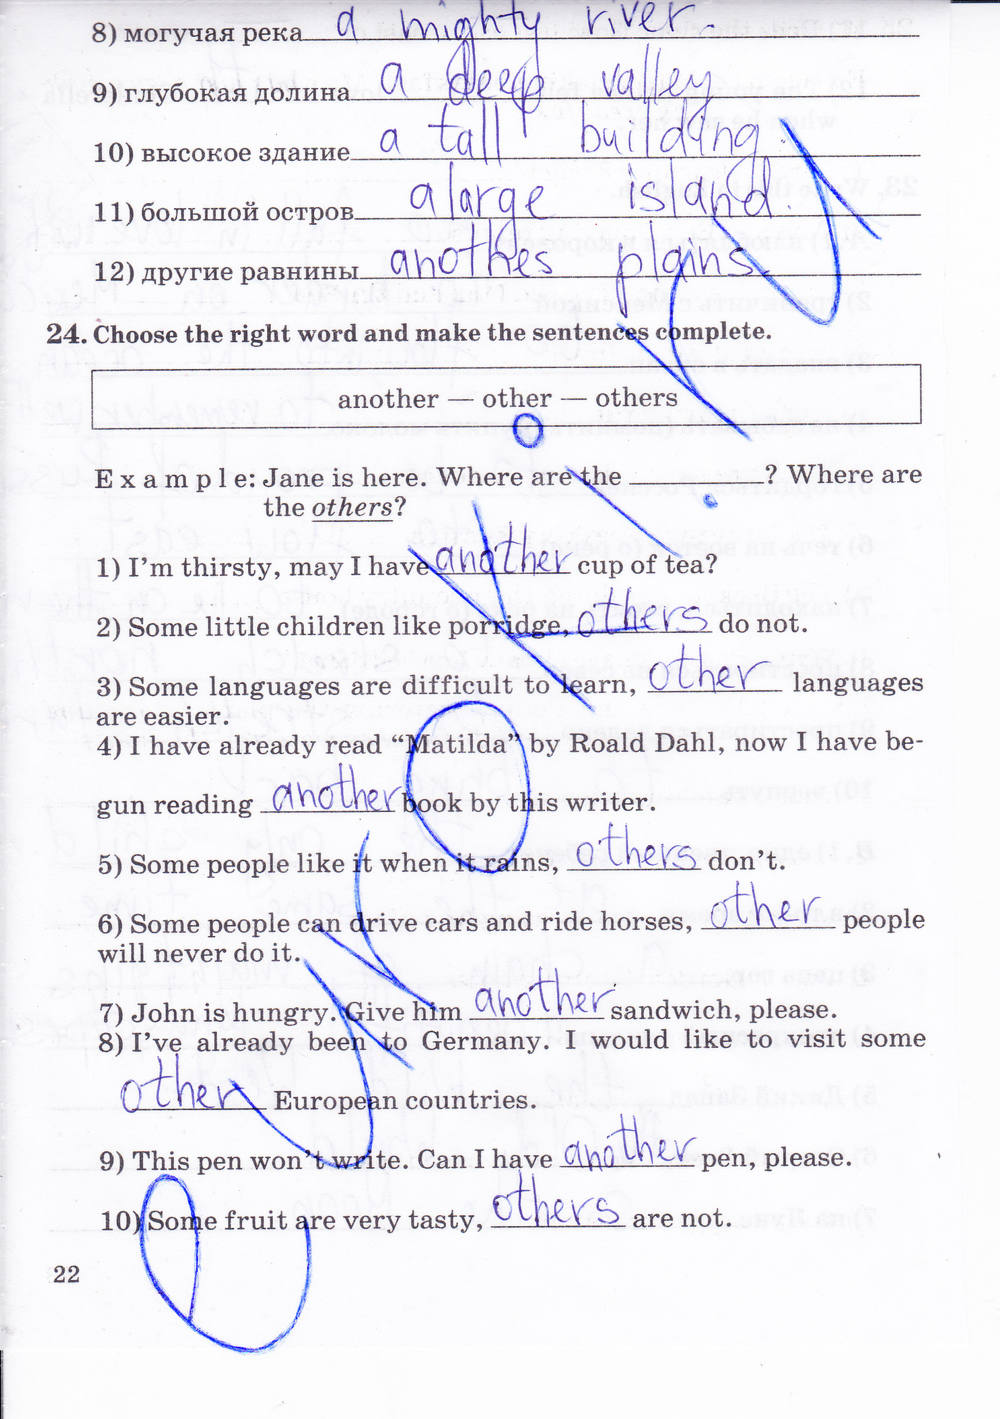 8) могучая река a mighty river.
9) глубокая долина a deep valley
10) высокое здание a tall building.
11) большой остров a large island.
12) другие равнины anothes plains
24. Choose the right word and make the sentences complete.
another — other — others
Example: Jane is here. Where are the ? Where are
the others?
1) I'm thirsty, may I have another cup of tea?
2) Some little children like porridge, others do not.
3) Some languages are difficult to learn, other languages
are easier.
4) I have already read “Matilda” by Roald Dahl, now I have be-
gun reading another book by this writer.
5) Some people like it when it rains, others don't.
6) Some people can drive cars and ride horses, other people
will never do it.
7) John is hungry. Give him another sandwich, please.
8) I've already been to Germany. I would like to visit some
other European countries.
9) This pen won't write. Can I have another pen, please.
10) Some fruit are very tasty, others are not.
22